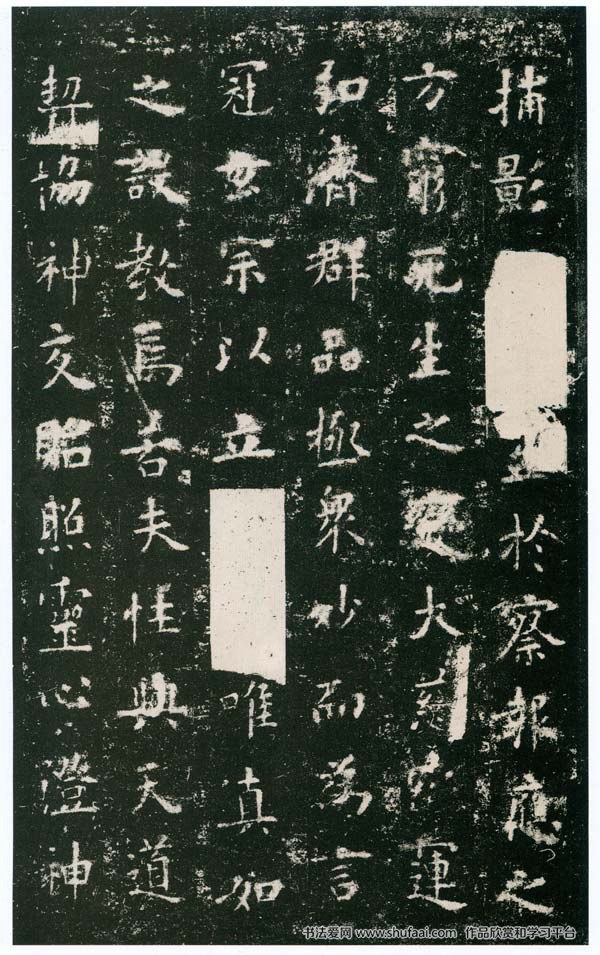 捕影至於察報應之
方窮死生之變大慈運
弘濟群品極衆妙而為言
冠玄宗以立唯真如
之設教焉若夫性與天道
契協神交照靈心澄神
书法爱网 www.shufaai.com 作品欣赏和学习平台